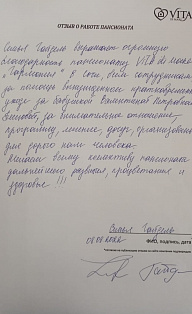 VITA
ОТЗЫВ О РАБОТЕ ПАНСИОНАТА
Семья Гайдель выражает огромную
благодарность пансионату Vita de малая
"Гармония" в Сочи, всем сотрудникам
за помощь в краткосрочном
уходе за бабушкой Валентиной Петровной
за внимательное отношение,
программу, лечение, досуг, организованные
для дорого нам человека.
Желаем всему коллективу пансионата
дальнейшего развития, процветания и
здоровья!!!
Семья Гайдель
ФИО, подпись, дата